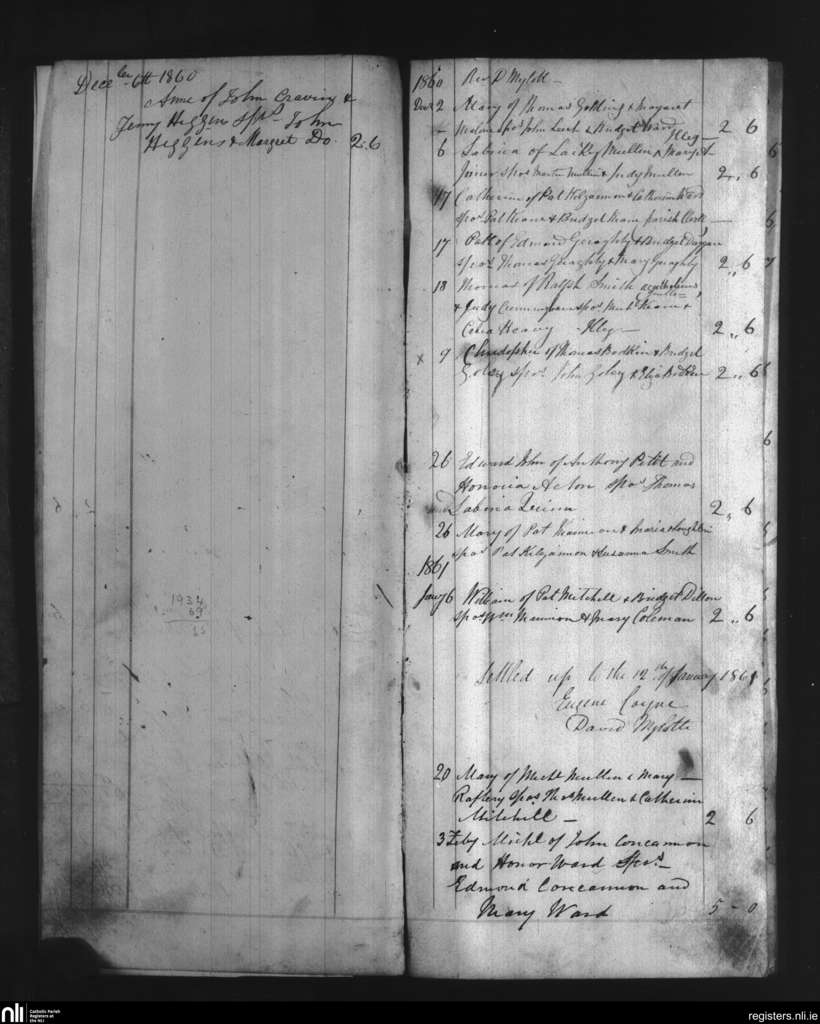 Decebr 6th 1860
Anne of John Craving &
Jenny Higgins Sps. John
Higgins & Margret Do. 2.6
1934
69
1860 Rev D Mylott
Decr 2 Mary of Thomas Golding & Margaret
Malone Spos John & Bridget Ward
Illeg 2 6
6 Sabrica of Lackey Mullen & Margt
Joiner Spos Martin Mullin & Judy Mullen 2 .. 6
17 Catherine of Pat Kilgannon & Catherine Ward
Spos Pat Keane & Bridget Keane Parish Clerk
17 Patt of Edmond Geraghty & Bridget Duggan
Spos. Thomas Geraghty & Mary Geraghty 2 .. 6
18 Thomas of Ralph Smith
& Judy Cunningham Spos Mich Keane &
Celia Heavy Illeg 2 .. 6
x 9 Christopher of Thomas Bodkin & Bridget
Goley Spos. John Goley & Eliza Bodkin 2 .. 6
26 Edward John of Anthony Petit and
Honoria Acton Spos Thomas
and Sabina Quinn 2 .. 6
26 Mary of Pat & Maria Loughlin
Spos Pat Kilgannon & Susanna Smith
1861
Jany 6 William of Pat Mitchell & Bridget Dillon
Spos Wm Mannion & Mary Coleman 2 .. 6
Settled up to the 12th of January 1861
Eugene Coyne
David Mylotte
20 Mary of Michl Mullen & Mary
Raftery Spos Thos Mullen & Catherine
Mitchell 2 6
3 Feby Michl of John Concannon
and Honor Ward Spos.
Edmond Concannon and
Mary Ward 5 - 0
nli Catholic Parish
Registers at
the NLI
registers.nli.ie